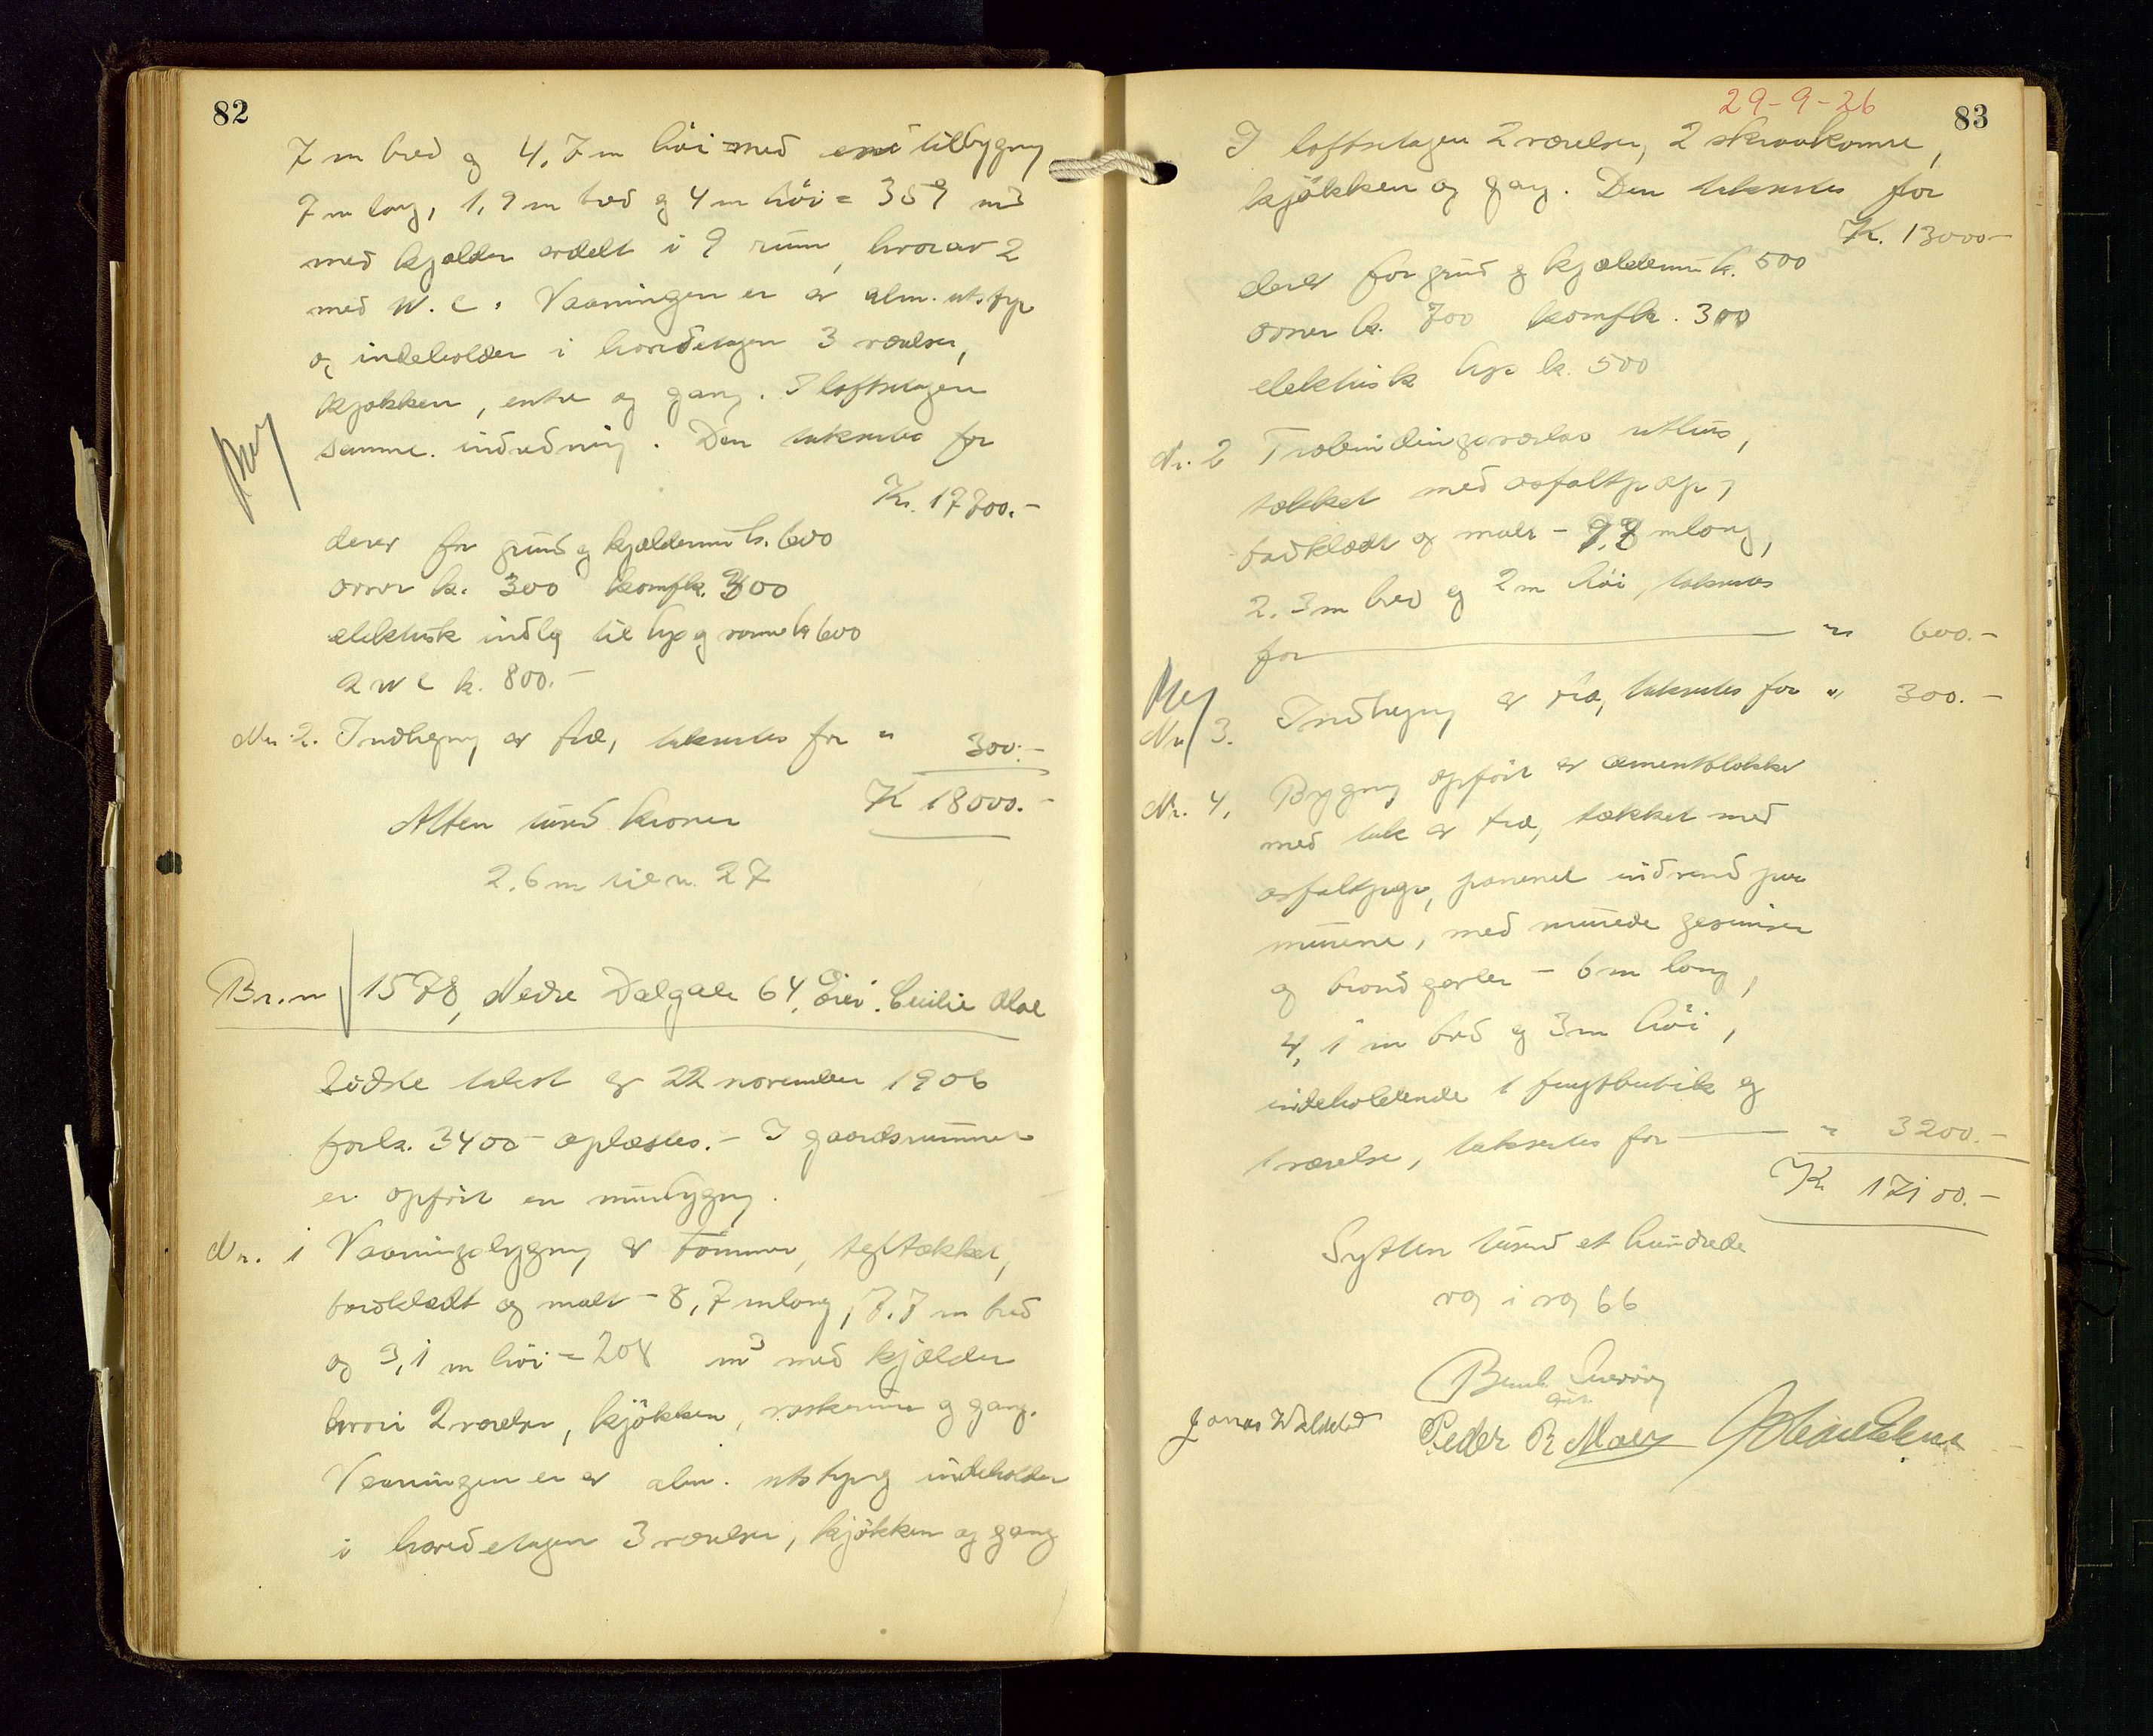 82
7 m bred og 4,7 m höi med en tilbygng
7 m lang, 1,9 m bred og 4 m höi = 359 m3
med kjælder avdelt i 9 rum, hvorav 2
med W.C. Vaaningen er av alm. utstyr
og indeholder i hovedetagen 3 værelser,
kjökken, entre og gang. I loftsetagen
samme indredning. Den takseres for
Kr. 17700.-
derav for grund og kjældermur k. 600
ovner k. 300 komfk. 300
elektrisk indlg til lys og varme kr 600
2 W C k. 800.-
Nr. 2. Indhegng av træ, takseres for " 300.-
K 18000.-
Atten tusend kroner
2.6 m til n. 27
Br.n 1578, Nedre Dalgate 64, Eier. Cecilie Moe
Sidste takst av 22 november 1906
for k. 3400 - oplæstes. - I gaardsrummet
er opfört en murbygng.
Nr. 1 Vaaningsbygng av tömmer, tegltækket,
bordklædt og malt - 8,7 m lang, 7.7 m bred
og 3,1 m höi = 208 m3 med kjælder
hvori 2 værelser, kjökken, vaskerum og gang.
Vaaningen er av alm. utstyr og indeholder
i hovedetagen 3 værelser, kjökken og gang
29-9-26
83
I loftsetagen 2 værelser, 2 skraakamre,
kjökken og gang. Den takseres for
K. 13000-
derav for grund og kjældermur k. 500
ovner k. 700 komfk. 300
elektrisk lys k. 500
Nr. 2 Træbindingsverks uthus,
tækket med asfaltpap,
bordklædt og malt - 9,9 m lang,
2.3 m bred og 2 m höi, takseres
for " 600.-
Nr. 3. Indhegng av træ, takseres for " 300.-
Nr. 4. Bygng opfört av cementblokker
med tak av træ, tækket med
asfaltpap, panelet indvend paa
murene, med murede gesimser
og brandgavler - 6 m lang,
4,1 m bred og 3 m höi,
indeholdende 1 frugtbutik og
1 værelse, takseres for " 3200.-
K 17100.-
Sytten tusend et hundrede
væg i væg 66
Jonas Peder R Moey